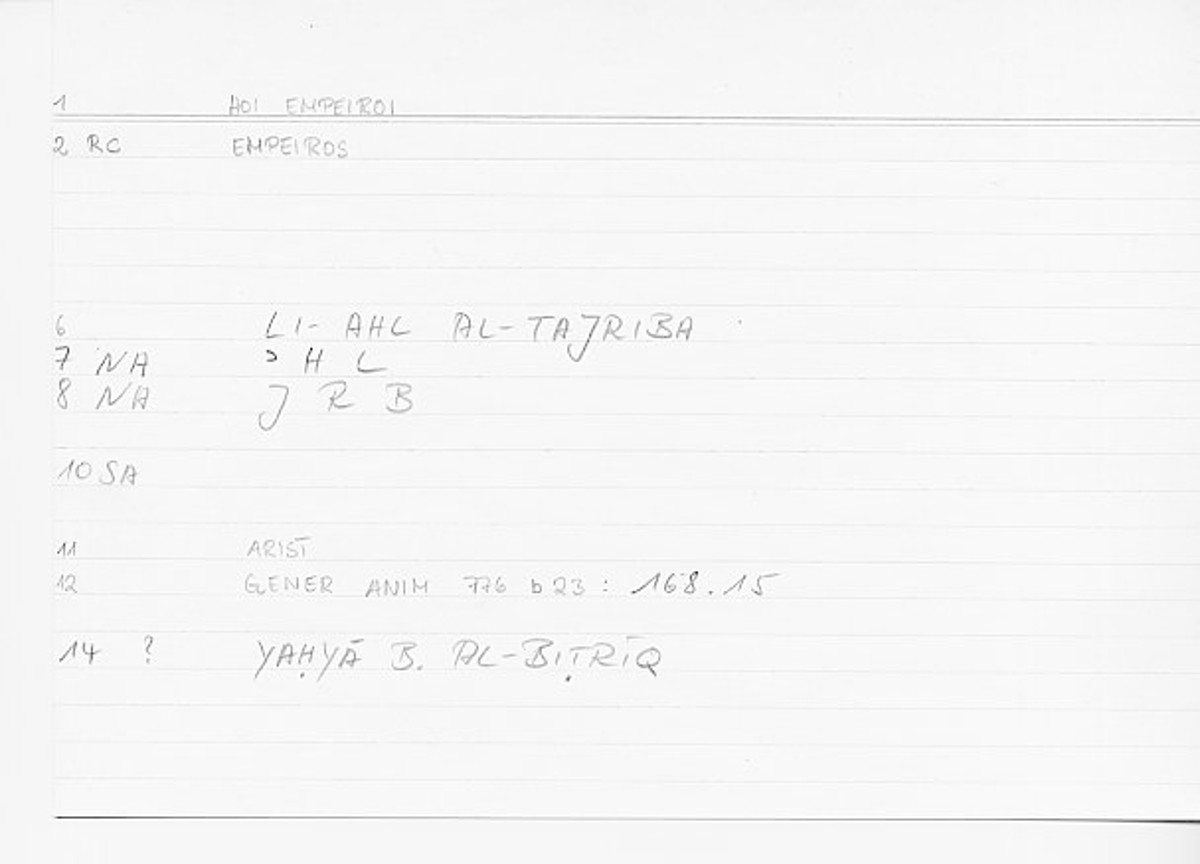 1 HOI EMPEIROI
2 RC EMPEIROS
6 LI- AHL AL-TAJRIBA
7 NA ʾ H L
8 NA J R B
10 SA
11 ARIST
12 GENER ANIM 776 b 23 : 168.15
14 ? YAḤYĀ B. AL-BIṬRĪQ